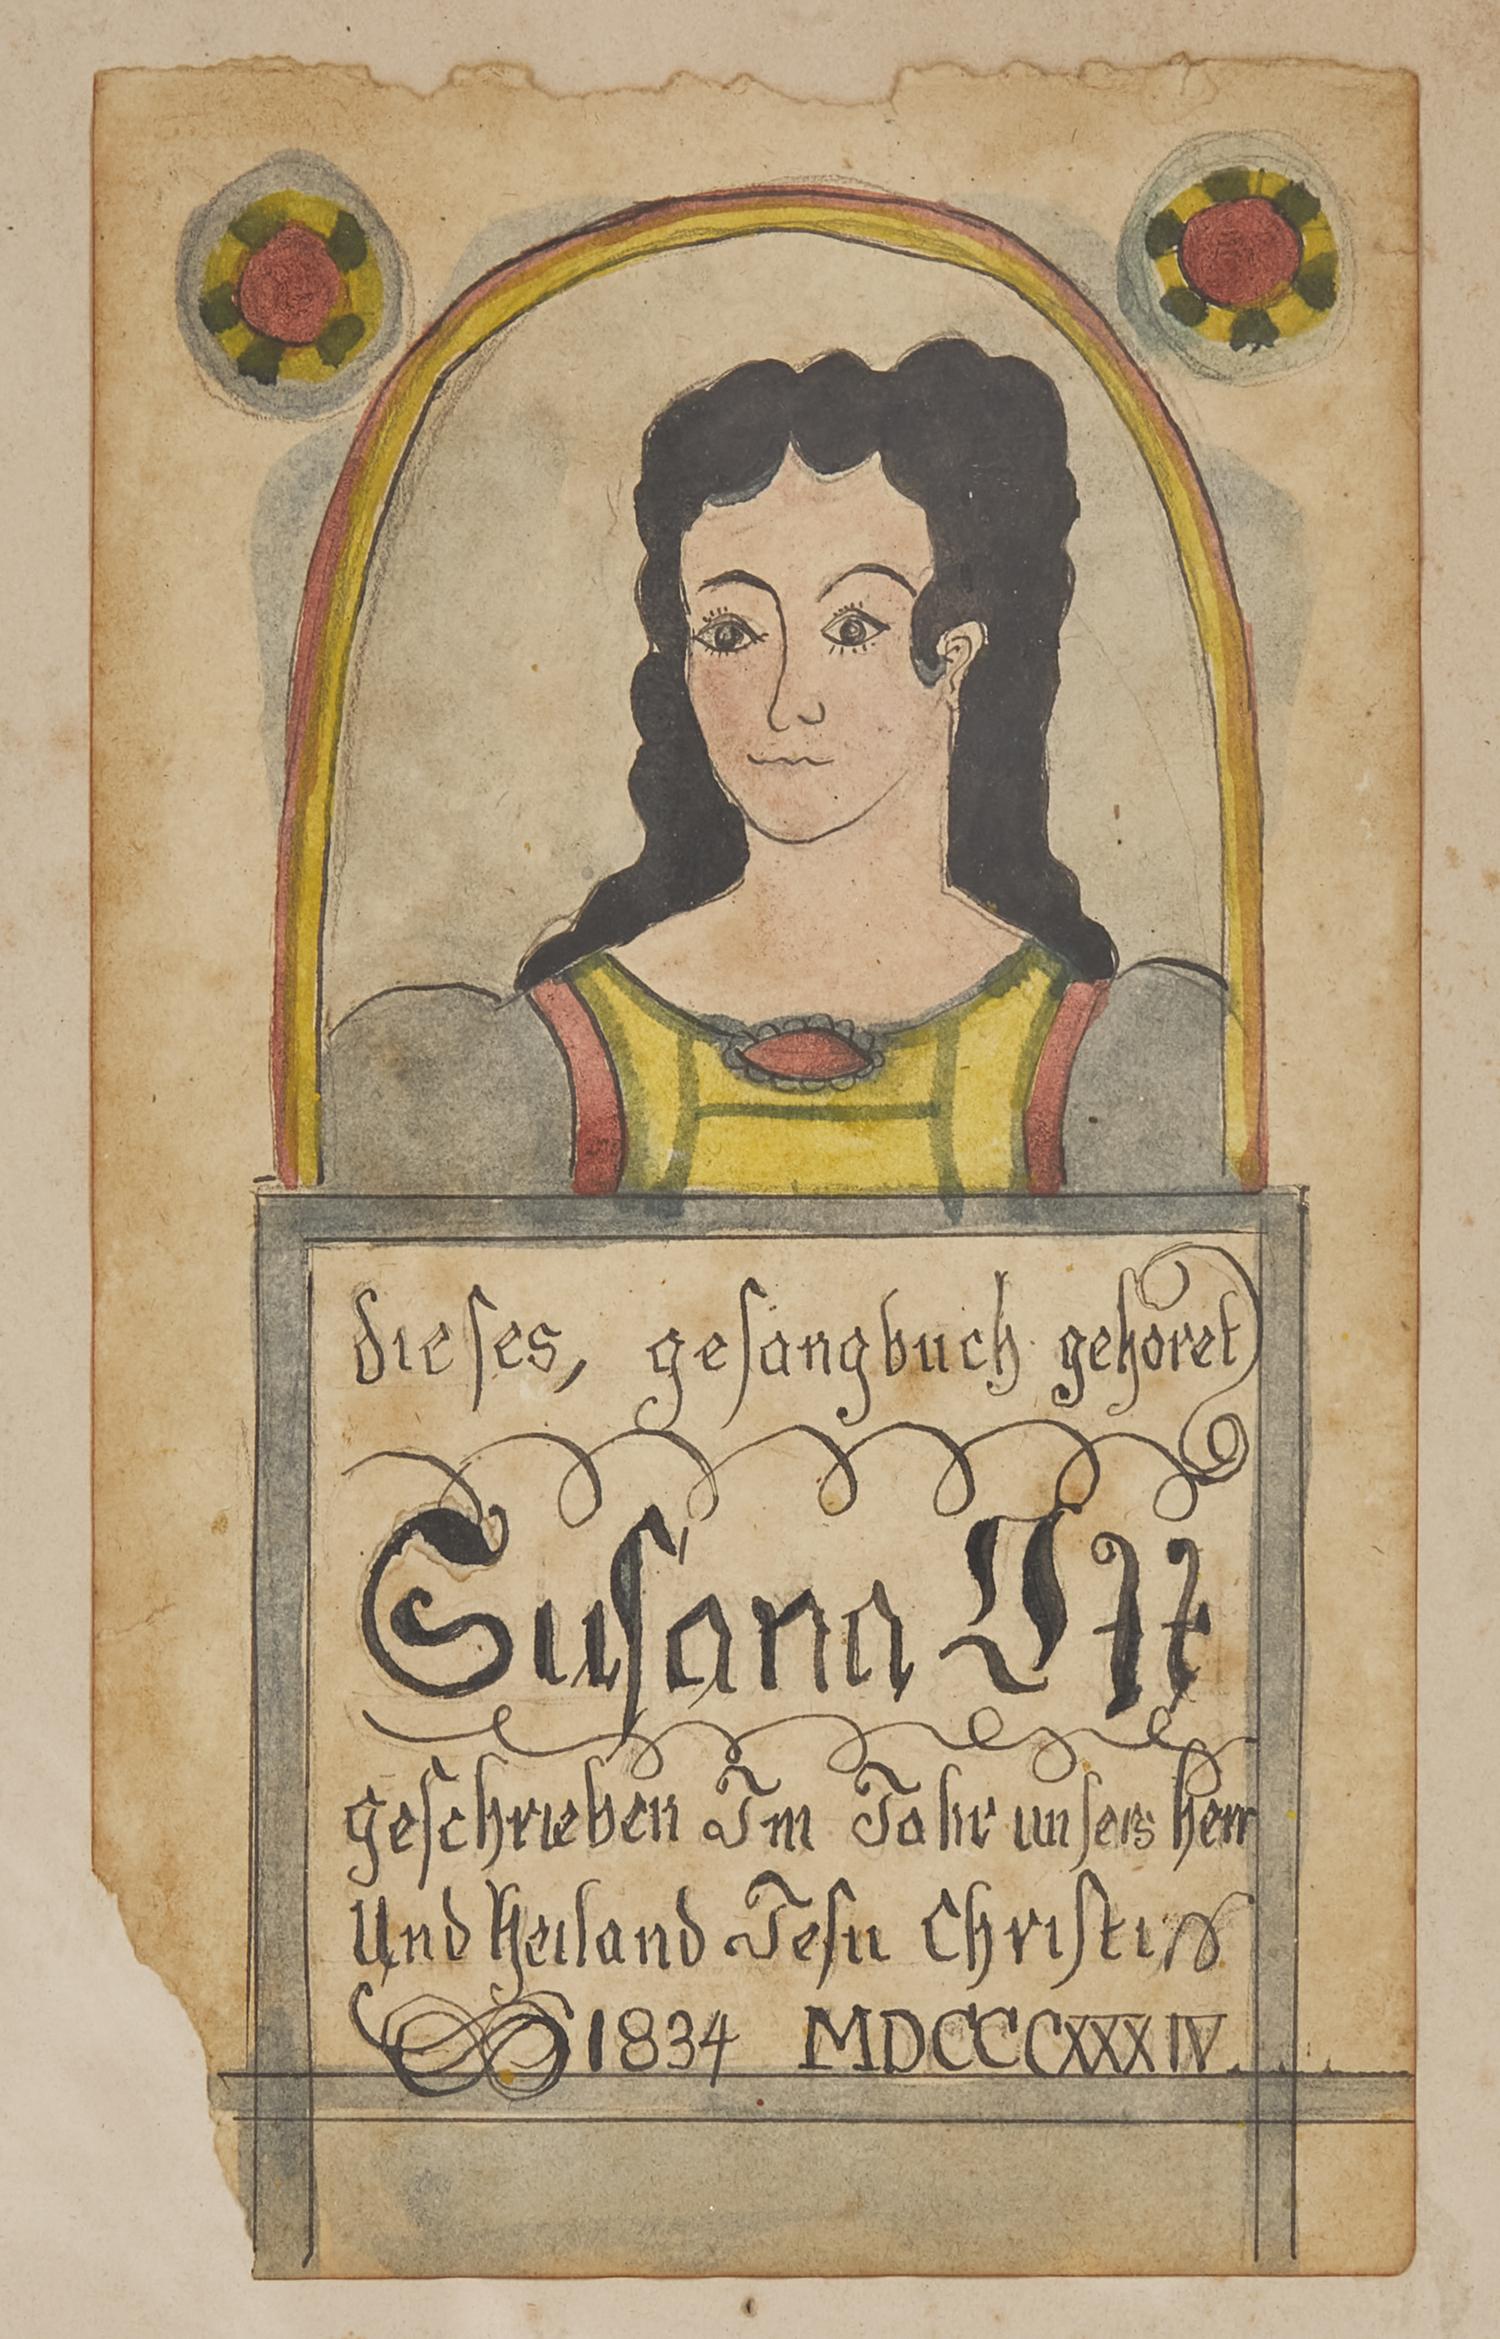 dieses, gesangbuch gehöret
Susana Itt
geschrieben Im Jahr unsers herr
Und Heiland Jesu Christi
1834 MDCCCXXXIV